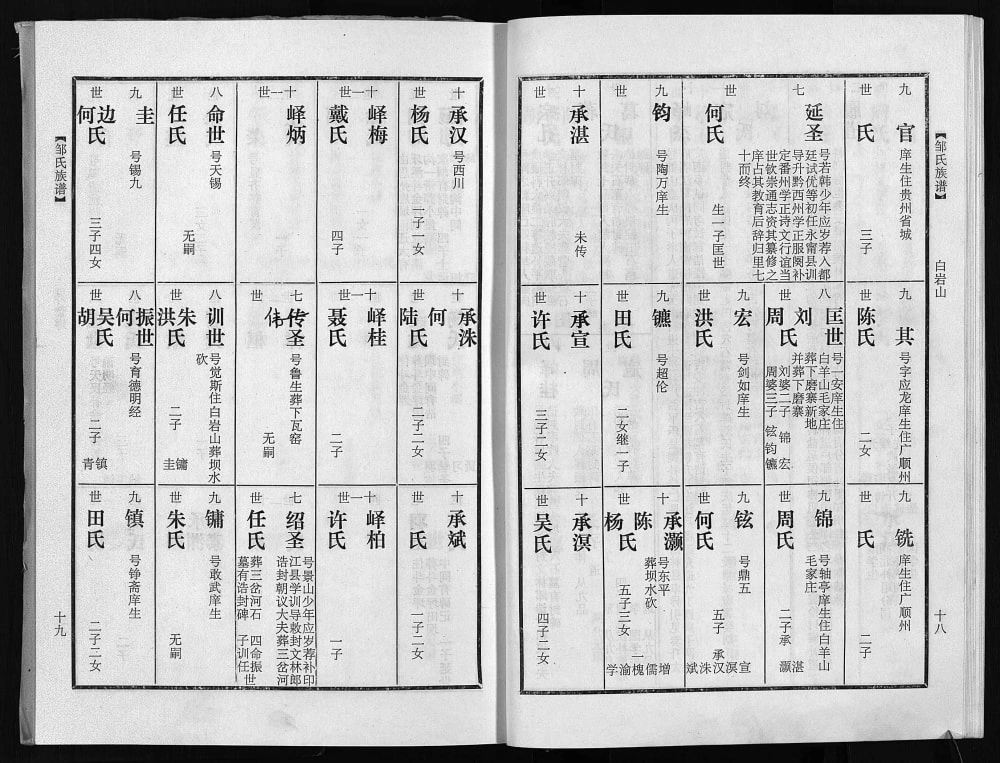 【邹氏族谱】
白岩山
十八
九世
官
庠生住贵州省城
氏
三子
九世
其
号字应龙庠生住广顺州
陈氏
二女
九世
铣
庠生住广顺州
氏
二子
七世
延圣
号若韩少年应岁荐入都
廷试优等初任永甯县训
导升黔西州学正服阕补
定番州学正诗文行谊当
世钦崇通志资其纂修之
庠占其教育后辞归里七
十而终
何氏
生一子匡世
八世
匡世
号一安庠生住
白羊山毛家庄
葬下磨寨新地
并葬下磨寨
刘
周氏
刘婆二子 锦 宏
周婆三子 铉钧镳
九世
锦
号轴亭庠生住白羊山
毛家庄
周氏
二子承
湛
灏
九世
钧
号陶万庠生
九世
宏
号剑如庠生
洪氏
九世
铉
号鼎五
何氏
五子 承
宣溟汉洙斌
十世
承湛
未传
九世
镳
号超伦
田氏
二女继一子
十世
承灏
号东平
葬坝水砍
陈
杨氏
五子三女
增儒槐渝学
十世
承宣
许氏
三子二女
十世
承溟
吴氏
四子二女
十世
承汉
号西川
杨氏
一子一女
十世
承洙
何
陆氏
二子二女
十世
承斌
氏
一子二女
十一世
峄梅
戴氏
四子
十一世
峄桂
聂氏
二子
十一世
峄柏
许氏
一子
十一世
峄炳
七世
传圣
伟
号鲁生葬下瓦窑
无嗣
七世
绍圣
号景山少年应岁荐补印
江县学训导敕封文林郎
诰封朝议大夫葬三岔河
任氏
葬三岔河石
墓有诰封碑
四命振世
子训任世
八世
命世
号天锡
任氏
无嗣
八世
训世
号觉斯住白岩山葬坝水
砍
朱
洪氏
二子
镛
圭
九世
镛
号敢武庠生
朱氏
无嗣
九世
圭
号锡九
边
何氏
三子四女
八世
振世
号育德明经
何
吴氏
胡
二子
镇
青
九世
镇
号铮斋庠生
田氏
二子二女
【邹氏族谱】
十九